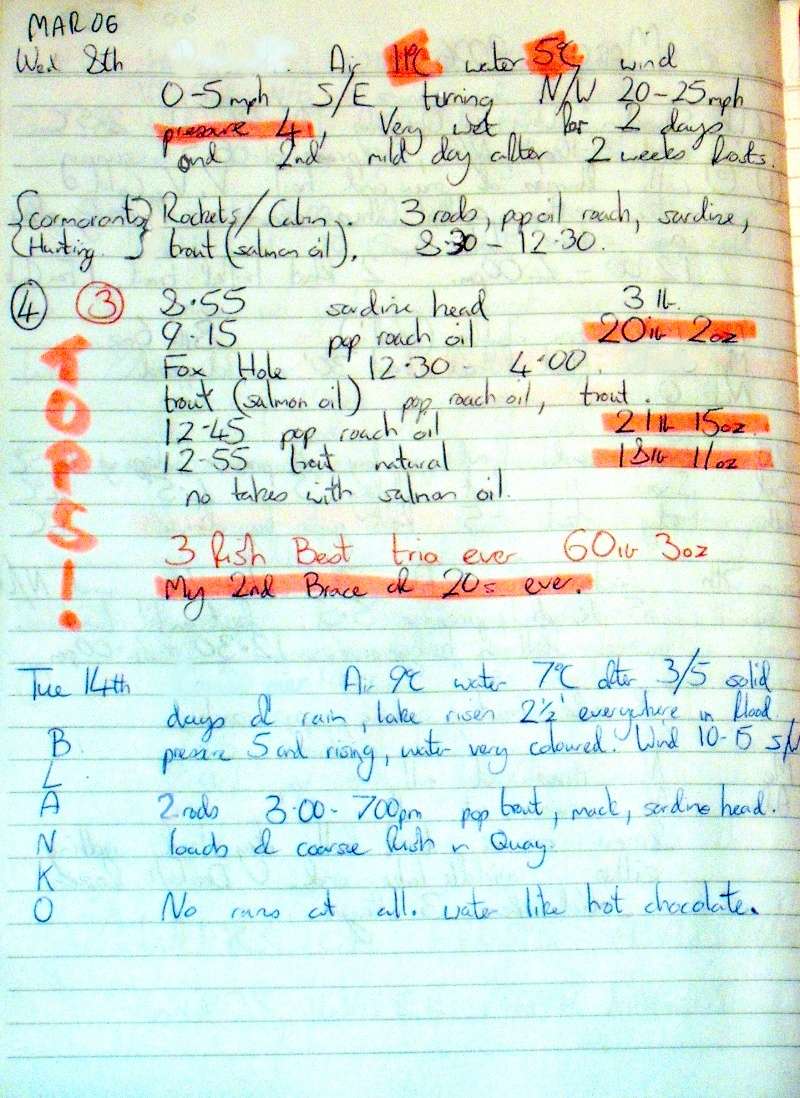 MAR 06
Wed 8th Air 11°C water 5°C wind
0-5mph, S/E turning N/W 20-25mph
pressure 4, Very wet for 2 days
and 2nd mild day after 2 weeks frosts.
{Cormorants} Rockets/Cabin. 3 rods, pop oil roach, sardine,
{Hunting} trout (salmon oil). 8.30 - 12.30.
4 3 8.55 sardine head 3 lb
9.15 pop roach oil 20lb 2oz
Fox Hole 12.30 - 4.00
trout (salmon oil) pop roach oil, trout.
12-45 pop roach oil 21lb 15oz
12-55 trout natural 18lb 11oz
no takes with salmon oil.
TOPS!
3 fish Best trio ever 60lb 3oz
My 2nd Brace of 20s ever.
Tue 14th Air 9°C water 7°C after 3/5 solid
days of rain, lake risen 2½' everywhere in flood
pressure 5 and rising, water very coloured. Wind 10-15 S/W
BLANKO
2 rods 3.00 - 700pm pop trout, mack, sardine head.
loads of coarse fish in Quay.
No runs at all. water like hot chocolate.